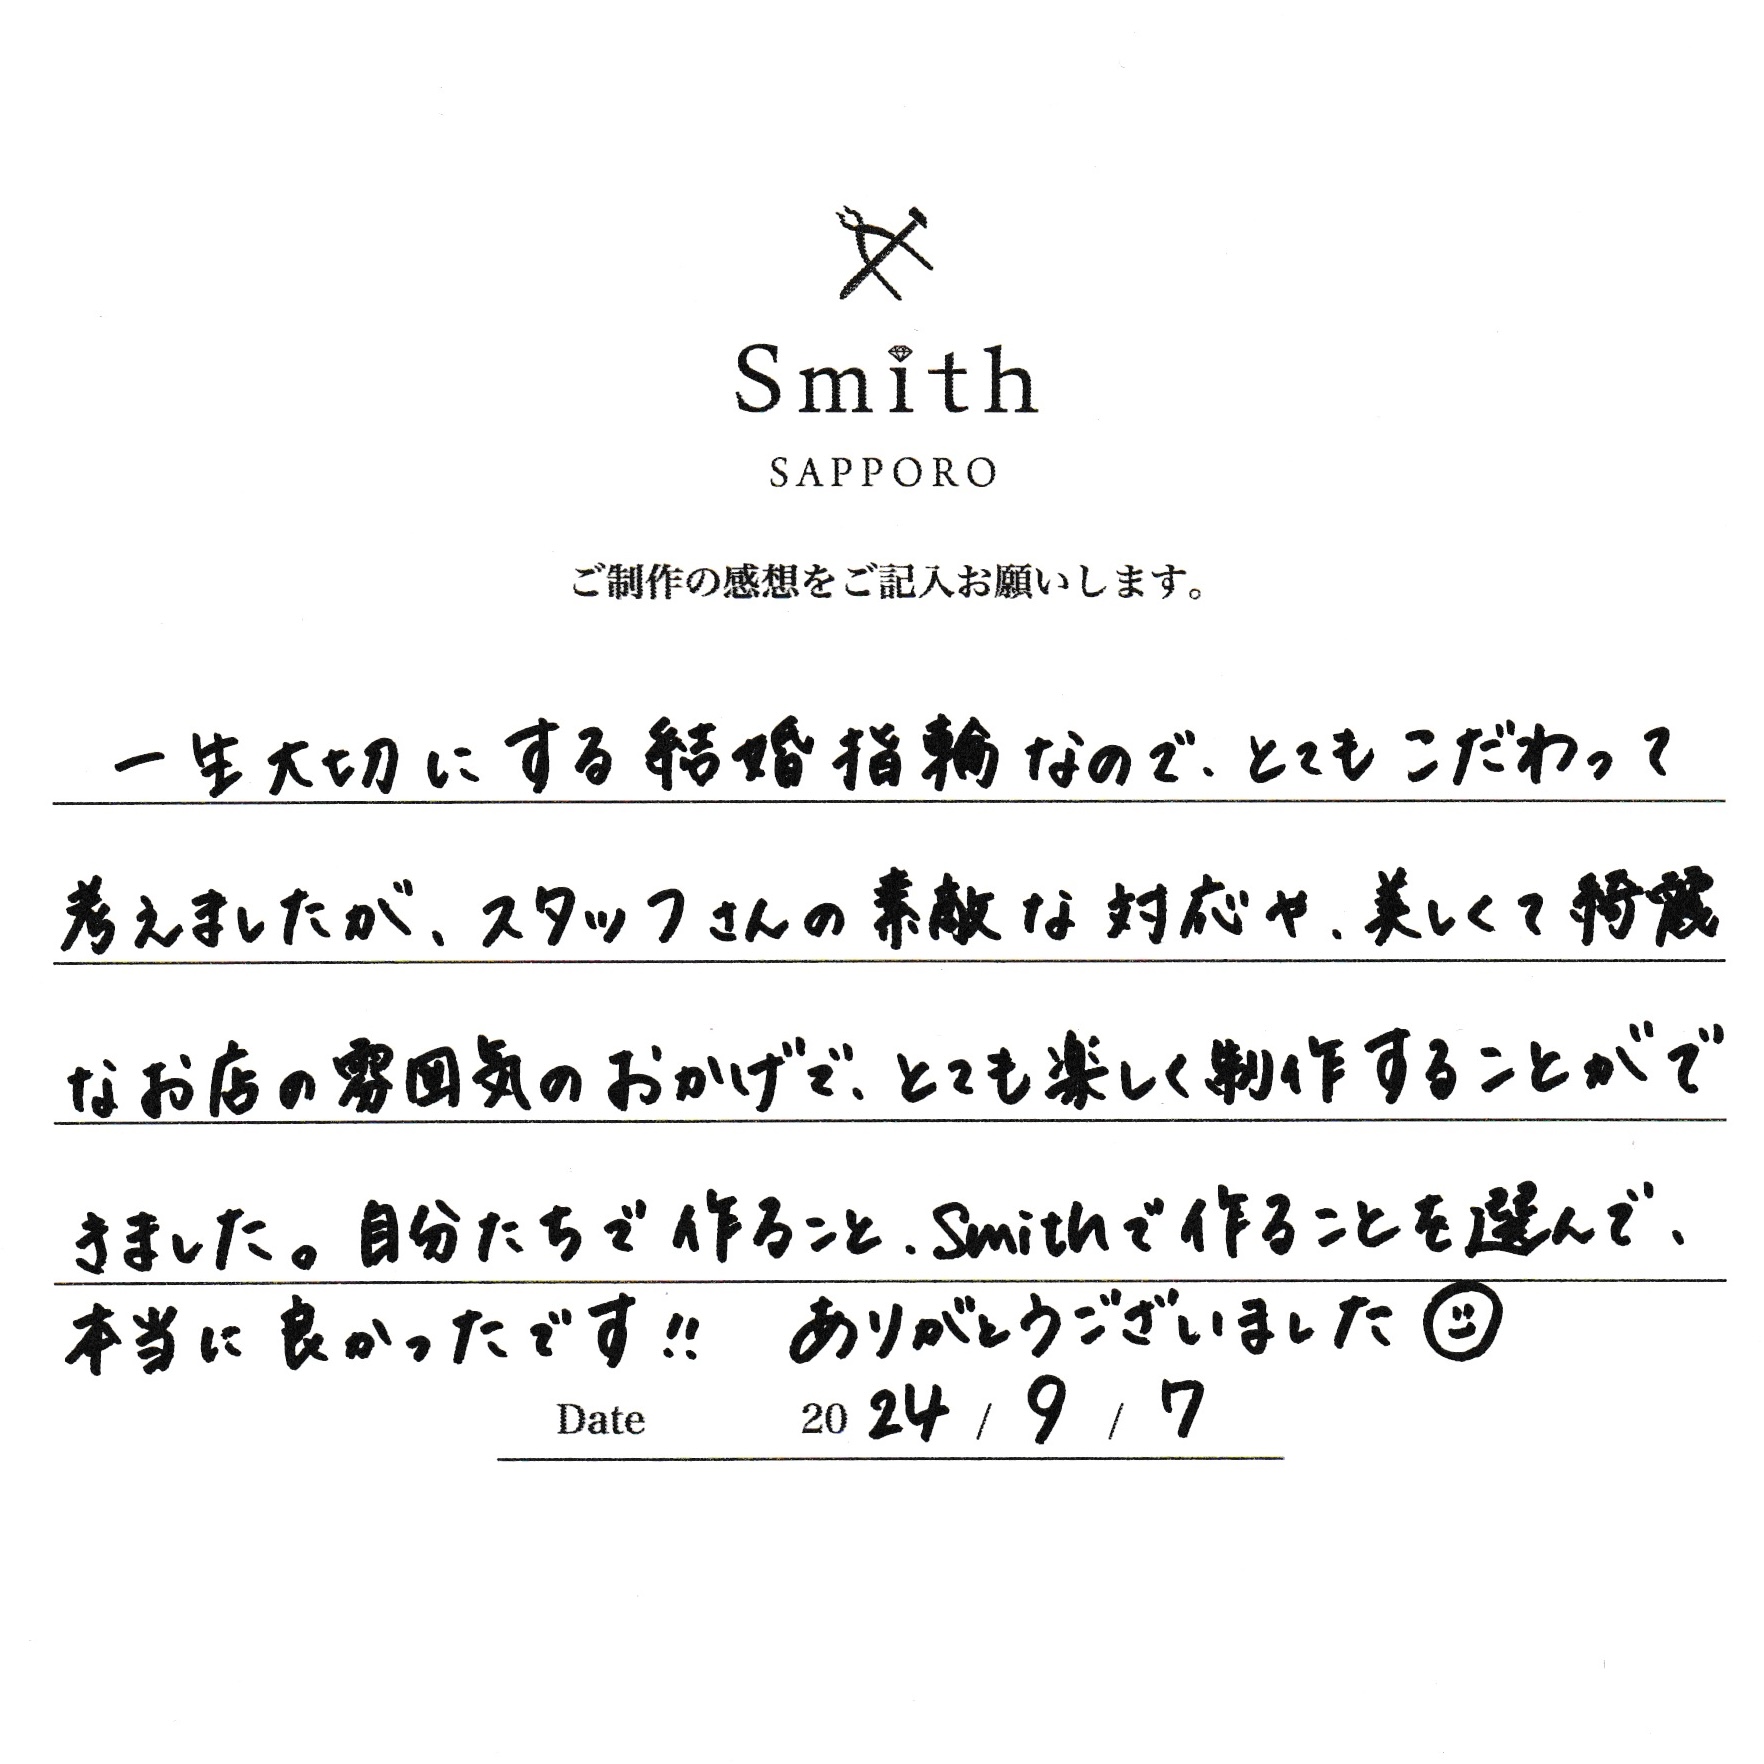 Smith
SAPPORO
ご制作の感想をご記入お願いします。
一生大切にする結婚指輪なので、とてもこだわって
考えましたが、スタッフさんの素敵な対応や、美しくて綺麗
なお店の雰囲気のおかげで、とても楽しく制作することがで
きました。自分たちで作ること、Smithで作ることを選んで、
本当に良かったです!! ありがとうございました
Date 2024 / 9 / 7